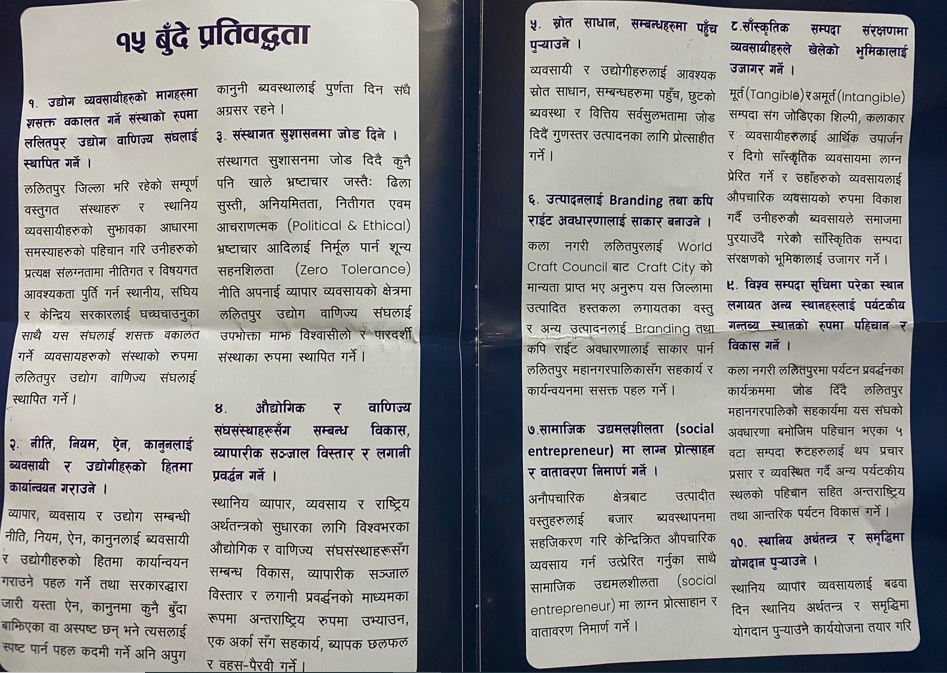 १५ बुँदे प्रतिवद्धता
१. उद्योग व्यवसायीहरुको मागहरुमा
शसक्त वकालत गर्ने संस्थाको रुपमा
ललितपुर उद्योग वाणिज्य संघलाई
स्थापित गर्ने ।
ललितपुर जिल्ला भरि रहेको सम्पूर्ण
वस्तुगत संस्थाहरु र स्थानिय
व्यवसायीहरुको सुझावका आधारमा
समस्याहरुको पहिचान गरि उनीहरुको
प्रत्यक्ष संलग्नतामा नीतिगत र विषयगत
आवश्यकता पुर्ति गर्न स्थानीय, संघिय
र केन्द्रिय सरकारलाई घच्घचाउनुका
साथै यस संघलाई शसक्त वकालत
गर्ने व्यवसायहरुको संस्थाको रुपमा
ललितपुर उद्योग वाणिज्य संघलाई
स्थापित गर्ने ।
२. नीति, नियम, ऐन, कानुनलाई
ब्यवसायी र उद्योगीहरुको हितमा
कार्यान्वयन गराउने ।
व्यापार, व्यवसाय र उद्योग सम्बन्धी
नीति, नियम, ऐन, कानुनलाई ब्यवसायी
र उद्योगीहरुको हितमा कार्यान्वयन
गराउने पहल गर्ने तथा सरकारद्धारा
जारी यस्ता ऐन, कानुनमा कुनै बुँदा
बाझिएका वा अस्पष्ट छन् भने त्यसलाई
स्पष्ट पार्न पहल कदमी गर्ने अनि अपुग
कानुनी ब्यवस्थालाई पुर्णता दिन संधै
अग्रसर रहने ।
३. संस्थागत सुशासनमा जोड दिने ।
संस्थागत सुशासनमा जोड दिदै कुनै
पनि खाले भ्रष्टाचार जस्तैः ढिला
सुस्ती, अनियमितता, नितीगत एवम
आचरणात्मक (Political & Ethical)
भ्रष्टाचार आदिलाई निर्मूल पार्न शून्य
सहनशिलता (Zero Tolerance)
नीति अपनाई व्यापार व्यवसायको क्षेत्रमा
ललितपुर उद्योग वाणिज्य संघलाई
उपभोक्ता माझ विश्वासीलो र पारदर्शी
संस्थाका रुपमा स्थापित गर्ने ।
४. औद्योगिक र वाणिज्य
संघसंस्थाहरूसँग सम्बन्ध विकास,
व्यापारीक सञ्जाल विस्तार र लगानी
प्रवर्द्धन गर्ने ।
स्थानिय व्यापार, व्यवसाय र राष्ट्रिय
अर्थतन्त्रको सुधारका लागि विश्वभरका
औद्योगिक र वाणिज्य संघसंस्थाहरूसँग
सम्बन्ध विकास, व्यापारीक सञ्जाल
विस्तार र लगानी प्रवर्द्धनको माध्यमका
रूपमा अन्तराष्ट्रिय रुपमा उभ्याउन,
एक अर्का सँग सहकार्य, ब्यापक छलफल
र वहस-पैरवी गर्ने ।
५. स्रोत साधान, सम्बन्धहरुमा पहुँच
पुऱ्याउने ।
व्यवसायी र उद्योगीहरुलाई आवश्यक
स्रोत साधान, सम्बन्धहरुमा पहुँच, छुटको
ब्यवस्था र वित्तिय सर्वसुलभतामा जोड
दिदैं गुणस्तर उत्पादनका लागि प्रोत्साहीत
गर्ने ।
६. उत्पादनलाई Branding तथा कपि
राईट अवधारणालाई साकार बनाउने ।
कला नगरी ललितपुरलाई World
Craft Council बाट Craft City को
मान्यता प्राप्त भए अनुरुप यस जिल्लामा
उत्पादित हस्तकला लगायतका वस्तु
र अन्य उत्पादनलाई Branding तथा
कपि राईट अवधारणालाई साकार पार्न
ललितपुर महानगरपालिकासँग सहकार्य र
कार्यन्वयनमा ससक्त पहल गर्ने ।
७.सामाजिक उद्यमलशीलता (social
entrepreneur) मा लाग्न प्रोत्साहन
र वातावरण निमार्ण गर्ने ।
अनौपचारिक क्षेत्रबाट उत्पादीत
वस्तुहरुलाई बजार ब्यवस्थापनमा
सहजिकरण गरि केन्द्रिक्रित औपचारिक
ब्यवसाय गर्न उत्प्रेरित गर्नुका साथै
सामाजिक उद्यमलशीलता (social
entrepreneur) मा लाग्न प्रोत्साहान र
वातावरण निमार्ण गर्ने ।
८.साँस्कृतिक सम्पदा संरक्षणमा
व्यवसायीहरुले खेलेको भुमिकालाई
उजागर गर्ने ।
मूर्त (Tangible) र अमूर्त (Intangible)
सम्पदा संग जोडिएका शिल्पी, कलाकार
र व्यवसायीहरुलाई आर्थिक उपार्जन
र दिगो साँस्कृतिक ब्यवसायमा लाग्न
प्रेरित गर्ने र उहाँहरुको ब्यवसायलाई
औपचारिक ब्यबसायको रुपमा विकाश
गर्दै उनीहरुकौ ब्यवसायले समाजमा
पुरयाउँदै गरेको साँस्कृतिक सम्पदा
संरक्षणको भूमिकालाई उजागर गर्ने ।
९. विश्व सम्पदा सूचिमा परेका स्थान
लगायत अन्य स्थानहरुलाई पर्यटकीय
गन्तब्य स्थानको रुपमा पहिचान र
विकास गर्ने ।
कला नगरी ललितपुरमा पर्यटन प्रवर्द्धनका
कार्यक्रममा जोड दिँदै ललितपुर
महानगरपालिको सहकार्यमा यस संघको
अवधारणा बमोजिम पहिचान भएका ५
वटा सम्पदा रुटहरुलाई थप प्रचार
प्रसार र ब्यवस्थित गर्दै अन्य पर्यटकीय
स्थलको पहिचान सहित अन्तराष्ट्रिय
तथा आन्तरिक पर्यटन विकास गर्ने ।
१०. स्थानिय अर्थतन्त्र र समृद्धिमा
योगदान पुऱ्याउने ।
स्थानिय ब्यापार व्यवसायलाई बढवा
दिन स्थानिय अर्थतन्त्र र समृद्धिमा
योगदान पुऱ्याउने कार्ययोजना तयार गरि